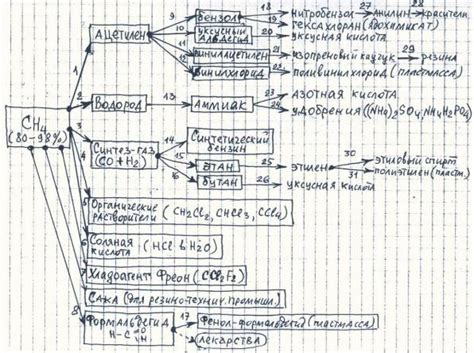 18 нитробензол 27 Анилин 28 красители
9 Бензол 19 гексахлоран (ядохимикат)
Ацетилен 10 уксусный альдегид 20 уксусная кислота
11 Винилацетилен 21 изопреновый каучук 29 резина
12 Винилхлорид 22 поливинилхлорид (пластмасса)
1
CH4 (80-98%)
2 Водород 13 Аммиак 23 Азотная кислота
24 удобрения ((NH4)2SO4, NH4H2PO4)
3
4 Синтез-газ (CO+H2) 14 Синтетический бензин
15 Этан 25 этилен 30 этиловый спирт
31 полиэтилен (пласт.)
16 Бутан 26 уксусная кислота
5 Органические растворители (CH2Cl2, CHCl3, CCl4)
6 Соляная кислота (HCl в H2O)
7 Хладоагент Фреон (CCl2F2)
Сажа (для резино-технич. промышл.)
8 Формальдегид 17 Фенол-формальдегид (пластмасса)
H-C=O H
лекарства